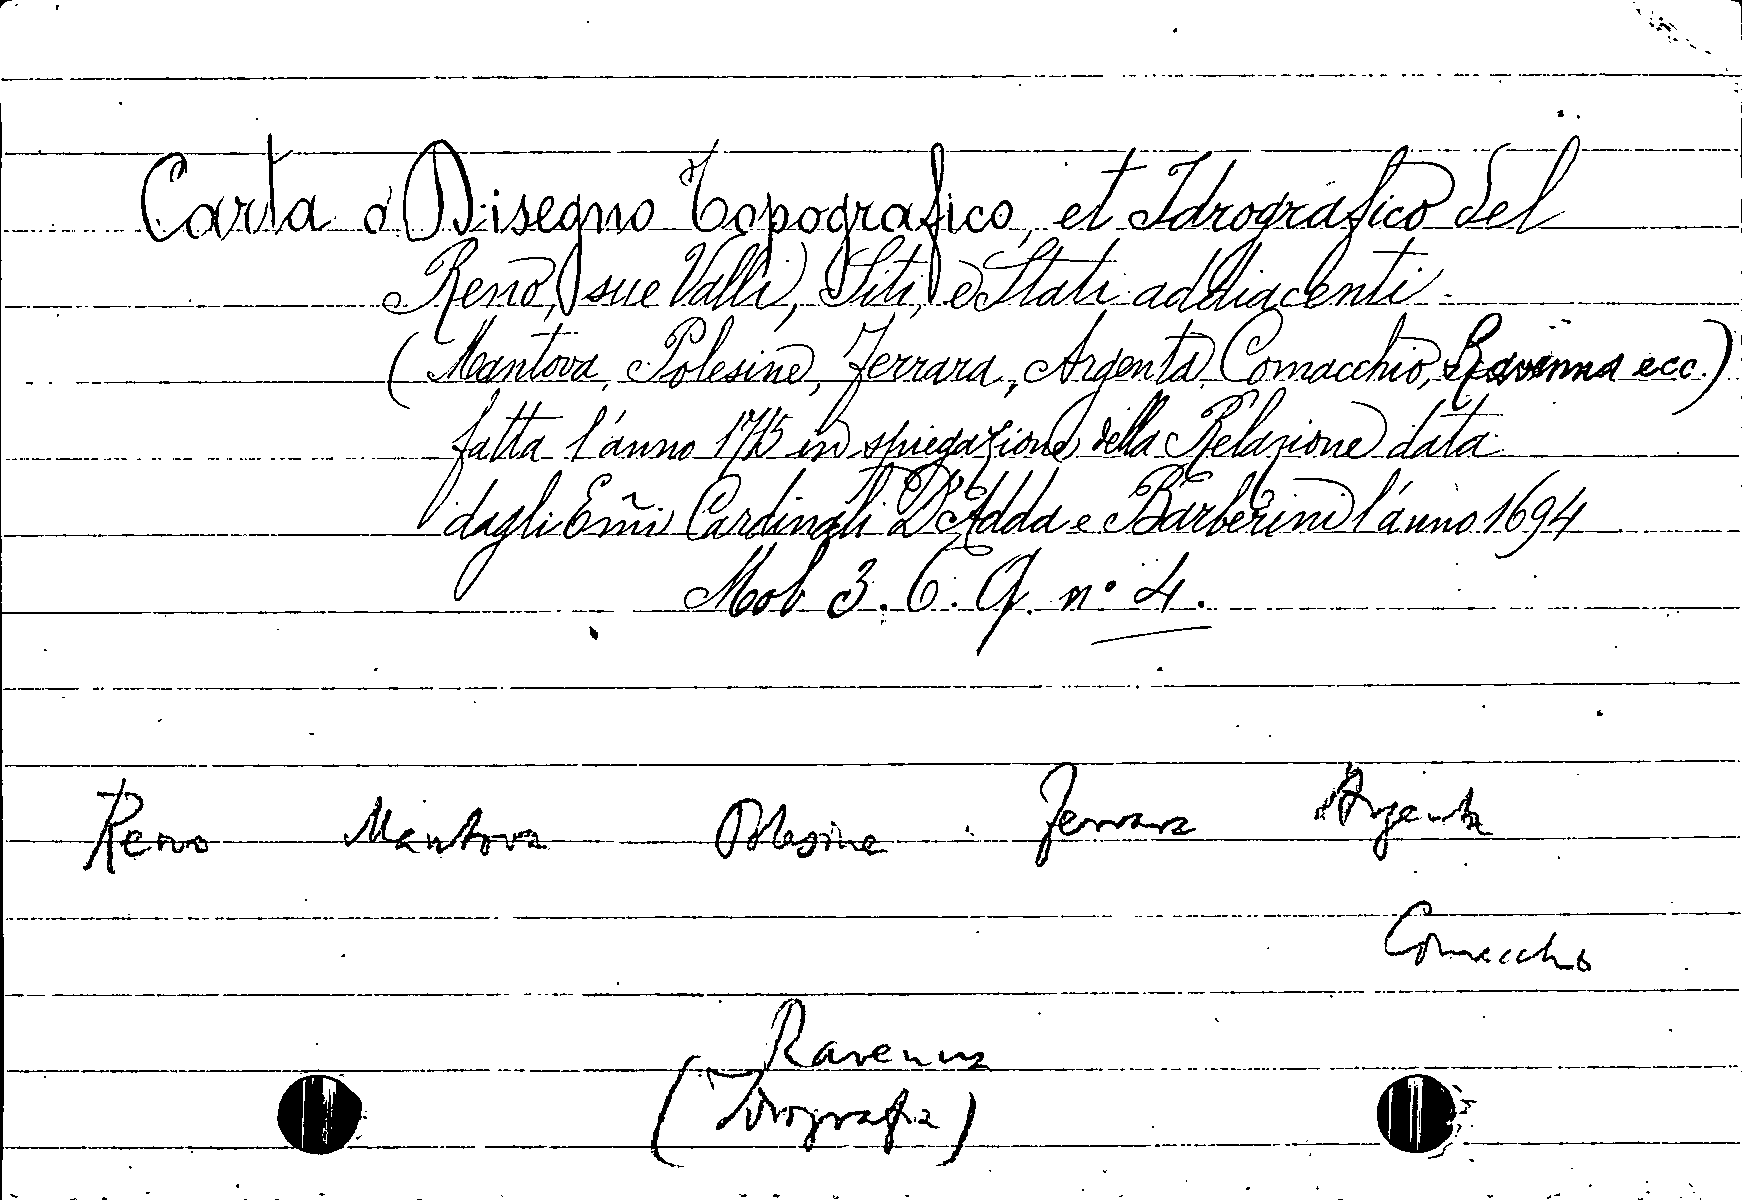 Carta o Disegno Topografico, et Idrografico del
Reno, sue Valli, Siti, e Stati addiacenti.
(Mantova, Polesine, Ferrara, Argenta, Comacchio, Ravenna ecc.)
fatta l'anno 1715 in spiegazione della Relazione data
dagli Em̃i Cardinali D'Adda e Barberini l'anno 1694
Mob 3. C. Q. n° 4.
Reno Mantova Polesine Ferrara Argenta
Comacchio
Ravenna
(Idrografia)